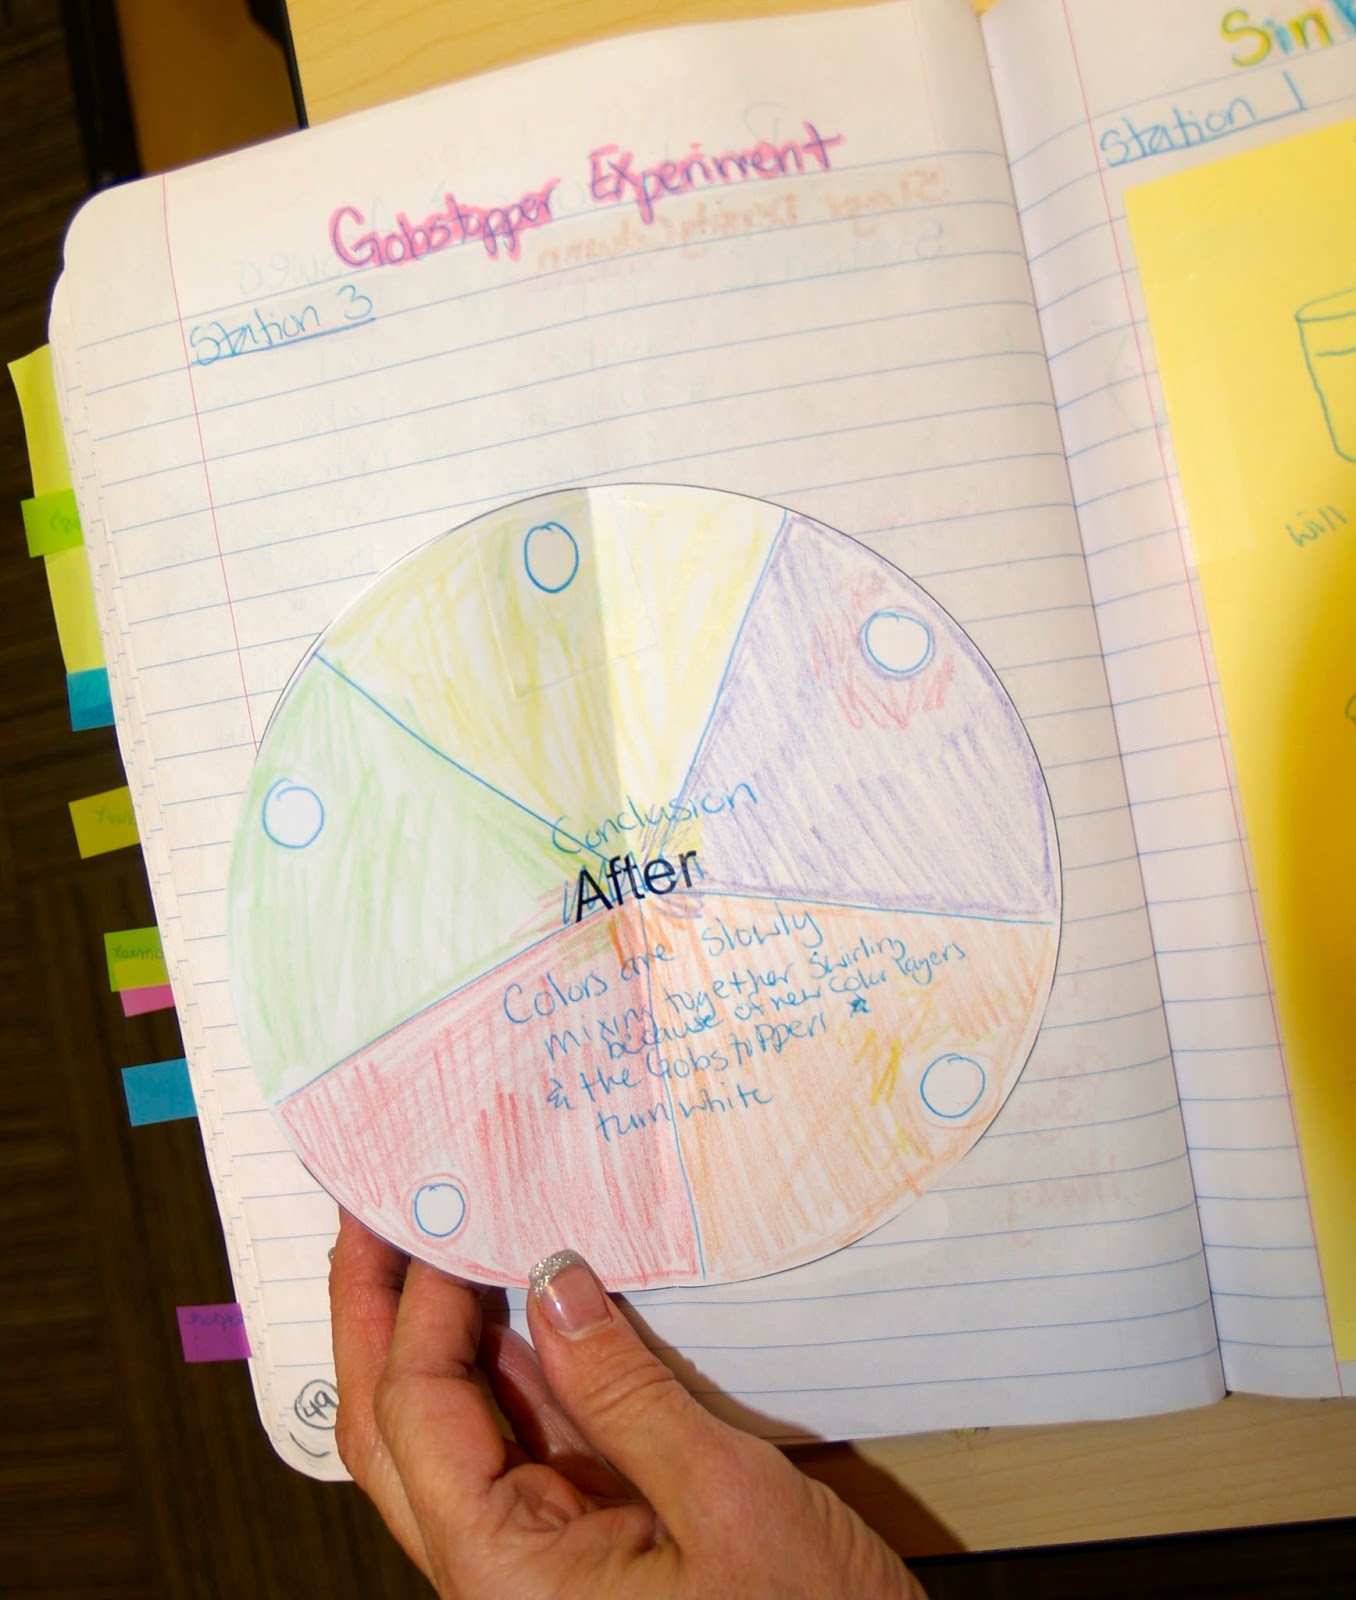 Gobstopper Experiment
Station 3
Conclusion
After
Colors are slowly
mixing together swirling
because of new color layers
& the Gobstoppers
turn white
49
Sink
Station 1
will